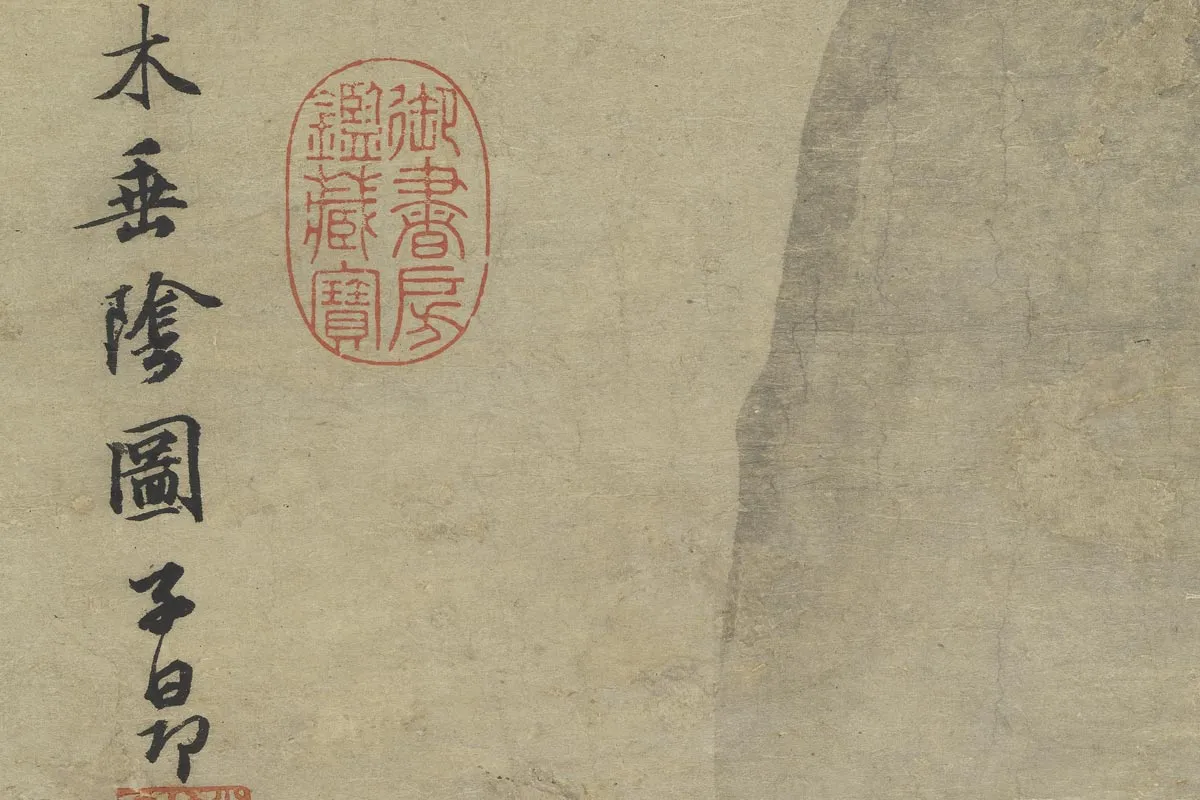 御書房
鑑藏寶
木垂陰圖子昂